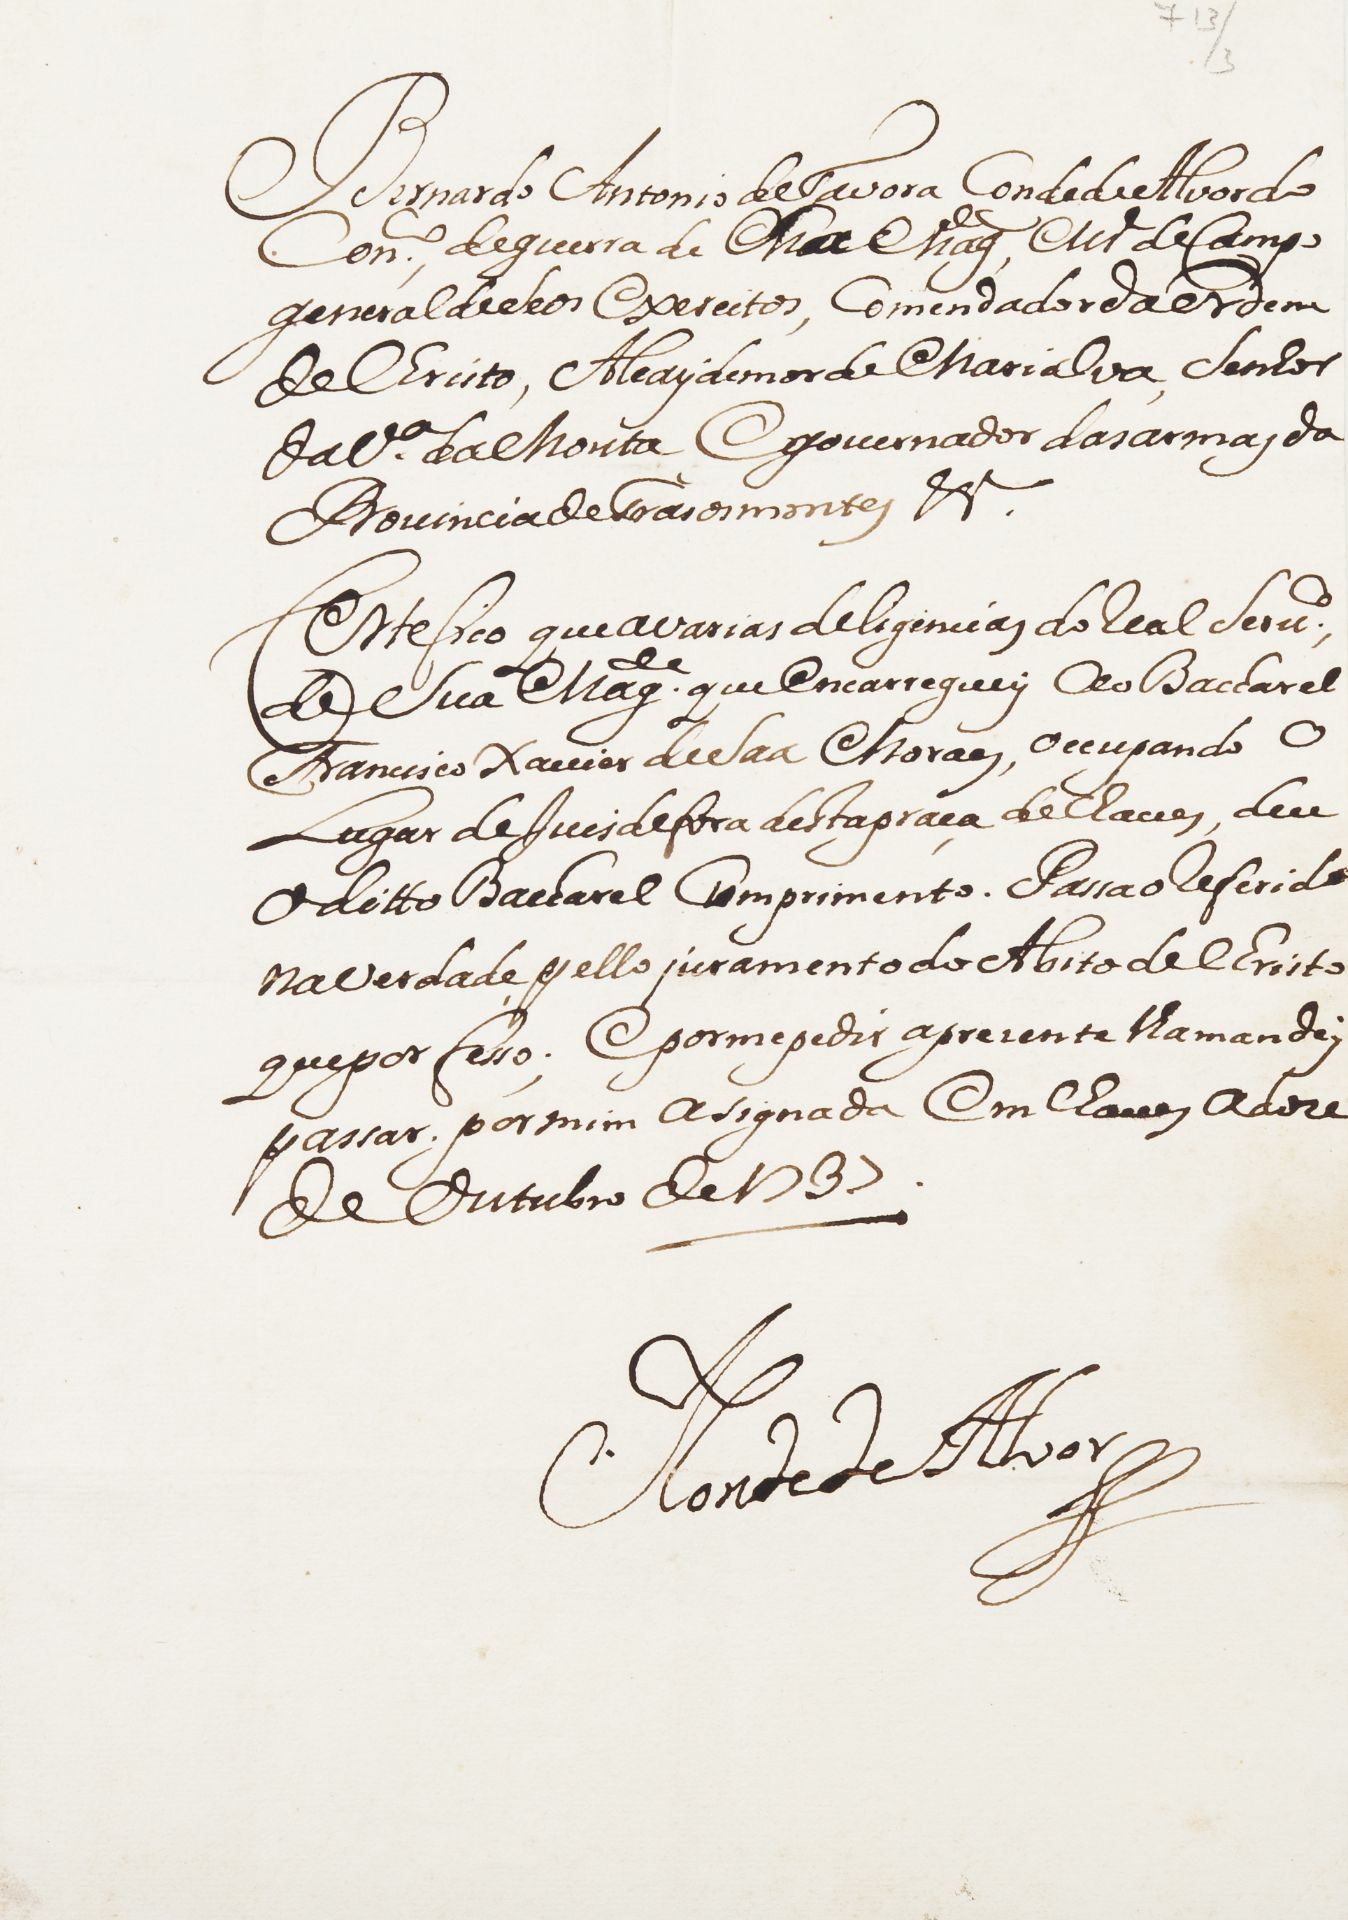 713/3
Bernardo Antonio de Tavora Conde de Alvor do
Con.º de guerra de Sua Mag.de, M.e de Campo
general de seos Exercitos, Comendador da Ordem
de Christo, Alcaydemor de Marialva, Senhor
da V.ª da Mouta E governador das armas da
Provincia de Trasosmontes &.
Certefico que a varias deligencias do Real Seru.º,
de Sua Mag.de que Encarreguey Ao Bacharel
Francisco Xavier de Saa Moraes, occupando O
Lugar de Juis de fora desta praça de Chaues, deu
O ditto Bacharel Comprimento. Passa o Referido
na Verdade, pello juramento do Abito de Christo
que porfesso; E por me pedir a prezente lha mandey
passar. por mim asignada Em Chaues a doze
de Outubro de 1737.
Conde de Alvor